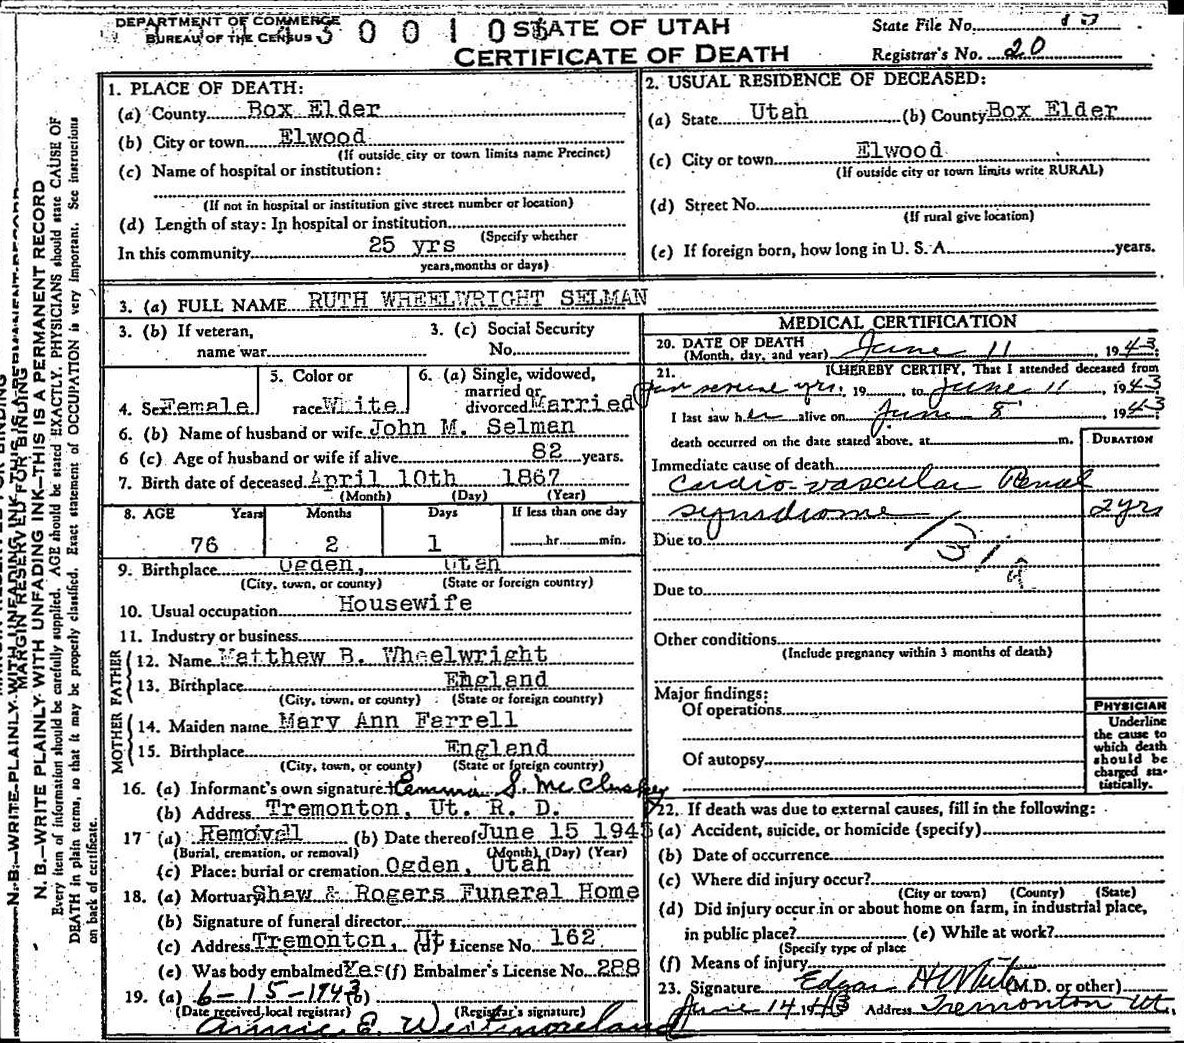 DEPARTMENT OF COMMERCE
BUREAU OF THE CENSUS
3 0 0 1 0
STATE OF UTAH
CERTIFICATE OF DEATH
State File No.
Registrar's No. 20
1. PLACE OF DEATH:
(a) County Box Elder
(b) City or town Elwood
(If outside city or town limits name Precinct)
(c) Name of hospital or institution:
(If not in hospital or institution give street number or location)
(d) Length of stay: In hospital or institution
(Specify whether
In this community 25 yrs
years, months or days)
2. USUAL RESIDENCE OF DECEASED:
(a) State Utah (b) County Box Elder
(c) City or town Elwood
(If outside city or town limits write RURAL)
(d) Street No.
(If rural give location)
(e) If foreign born, how long in U. S. A. years.
3. (a) FULL NAME RUTH WHEELWRIGHT SELMAN
3. (b) If veteran,
name war
3. (c) Social Security
No.
4. Sex Female
5. Color or
race White
6. (a) Single, widowed,
married or
divorced Married
6. (b) Name of husband or wife John M. Selman
6 (c) Age of husband or wife if alive 82 years.
7. Birth date of deceased April 10th 1867
(Month) (Day) (Year)
8. AGE Years Months Days If less than one day
76 2 1 hr. min.
9. Birthplace Ogden, Utah
(City, town, or county) (State or foreign country)
10. Usual occupation Housewife
11. Industry or business
FATHER
12. Name Matthew B. Wheelwright
13. Birthplace England
(City, town, or county) (State or foreign country)
MOTHER
14. Maiden name Mary Ann Farrell
15. Birthplace England
(City, town, or county) (State or foreign country)
16. (a) Informant's own signature Emma S. McCluskey
(b) Address Tremonton, Ut. R. D.
17 (a) Removal (b) Date thereof June 15 1943
(Burial, cremation, or removal) (Month) (Day) (Year)
(c) Place: burial or cremation Ogden, Utah
18. (a) Mortuary Shaw & Rogers Funeral Home
(b) Signature of funeral director
(c) Address Tremonton, Ut. (d) License No. 162
(e) Was body embalmed Yes (f) Embalmer's License No. 288
19. (a) 6-15-1943 (b)
(Date received local registrar) (Registrar's signature)
Annie E. Westmoreland
MEDICAL CERTIFICATION
20. DATE OF DEATH
(Month, day, and year) June 11, 1943
21. I HEREBY CERTIFY, That I attended deceased from
yrs, 19 , to June 11, 1943
I last saw her alive on June 8 1943
death occurred on the date stated above, at m.
DURATION
Immediate cause of death
Cardio-vascular Renal
synsdrome 2 yrs
Due to
131a
Due to
Other conditions
(Include pregnancy within 3 months of death)
Major findings:
Of operations
Of autopsy
PHYSICIAN
Underline
the cause to
which death
should be
charged sta-
tistically.
22. If death was due to external causes, fill in the following:
(a) Accident, suicide, or homicide (specify)
(b) Date of occurrence
(c) Where did injury occur?
(City or town) (County) (State)
(d) Did injury occur in or about home on farm, in industrial place,
in public place? (e) While at work?
(Specify type of place
(f) Means of injury
23. Signature Edgar H White (M.D. or other)
June 14 1943 Address Tremonton Ut.
MARGIN RESERVED FOR BINDING
N. B.—WRITE PLAINLY WITH UNFADING INK—THIS IS A PERMANENT RECORD
Every item of information should be carefully supplied. AGE should be stated EXACTLY. PHYSICIANS should state CAUSE OF
DEATH in plain terms, so that it may be properly classified. Exact statement of OCCUPATION is very important. See instructions
on back of certificate.